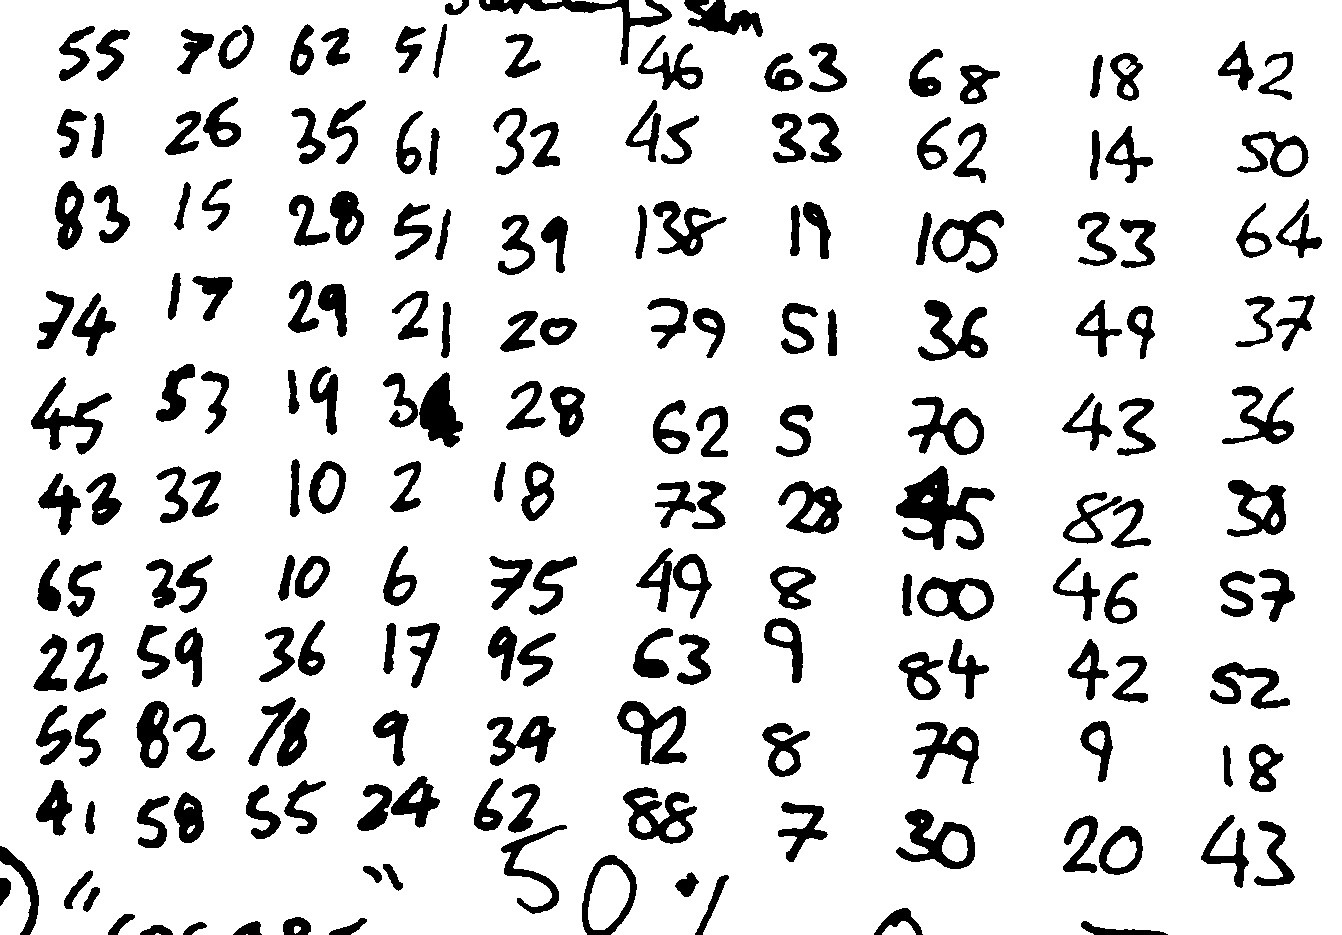 sam
55 70 62 51 2 46 63 68 18 42
51 26 35 61 32 45 33 62 14 50
83 15 28 51 39 138 19 105 33 64
74 17 29 21 20 79 51 36 49 37
45 53 19 34 28 62 5 70 43 36
43 32 10 2 18 73 28 45 82 38
65 35 10 6 75 49 8 100 46 57
22 59 36 17 95 63 9 84 42 52
55 82 78 9 34 92 8 79 9 18
41 58 55 24 62 88 7 30 20 43
" " 50 %